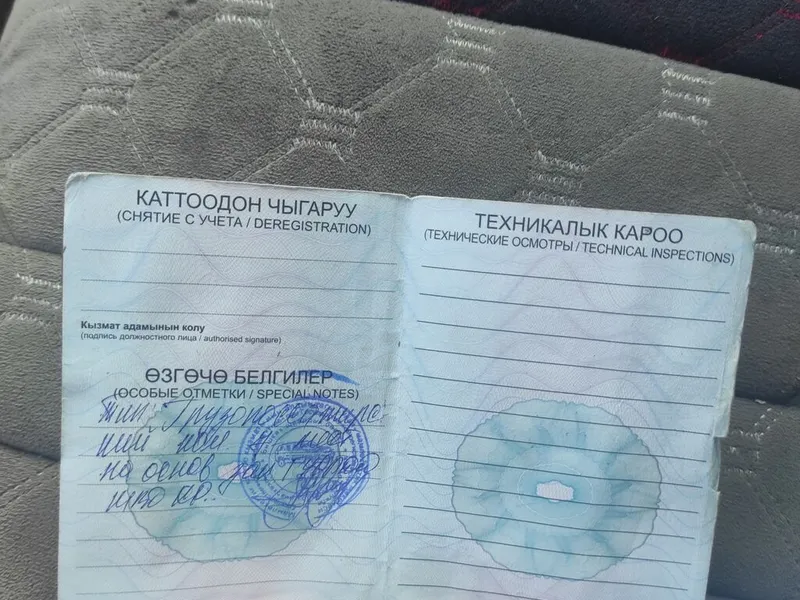 КАТТООДОН ЧЫГАРУУ
(СНЯТИЕ С УЧЕТА / DEREGISTRATION)
Кызмат адамынын колу
(подпись должностного лица / authorised signature)
ӨЗГӨЧӨ БЕЛГИЛЕР
(ОСОБЫЕ ОТМЕТКИ / SPECIAL NOTES)
тип: Грузопассажирс
кий
на основ
ТЕХНИКАЛЫК КАРОО
(ТЕХНИЧЕСКИЕ ОСМОТРЫ / TECHNICAL INSPECTIONS)